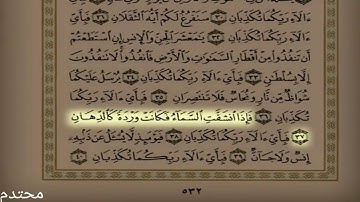 ءَالَآءِ رَبِّكُمَا تُكَذِّبَانِ ٣٠ سَنَفْرُغُ لَكُمْ أَيُّهَ ٱلثَّقَلَانِ ٣١ فَبِأَيِّ
ءَالَآءِ رَبِّكُمَا تُكَذِّبَانِ ٣٢ يَٰمَعْشَرَ ٱلْجِنِّ وَٱلْإِنسِ إِنِ ٱسْتَطَعْتُمْ
أَن تَنفُذُوا۟ مِنْ أَقْطَارِ ٱلسَّمَٰوَٰتِ وَٱلْأَرْضِ فَٱنفُذُوا۟ لَا تَنفُذُونَ
إِلَّا بِسُلْطَٰنٍ ٣٣ فَبِأَيِّ ءَالَآءِ رَبِّكُمَا تُكَذِّبَانِ ٣٤ يُرْسَلُ عَلَيْكُمَا
شُوَاظٌ مِّن نَّارٍ وَنُحَاسٌ فَلَا تَنتَصِرَانِ ٣٥ فَبِأَيِّ ءَالَآءِ رَبِّكُمَا
تُكَذِّبَانِ ٣٦ فَإِذَا ٱنشَقَّتِ ٱلسَّمَآءُ فَكَانَتْ وَرْدَةً كَٱلدِّهَانِ
٣٧ فَبِأَيِّ ءَالَآءِ رَبِّكُمَا تُكَذِّبَانِ ٣٨ فَيَوْمَئِذٍ لَّا يُسْـَٔلُ عَن ذَنۢبِهِۦٓ
إِنسٌ وَلَا جَآنٌّ ٣٩ فَبِأَيِّ ءَالَآءِ رَبِّكُمَا تُكَذِّبَانِ ٤٠
٥٣٢
محتدم